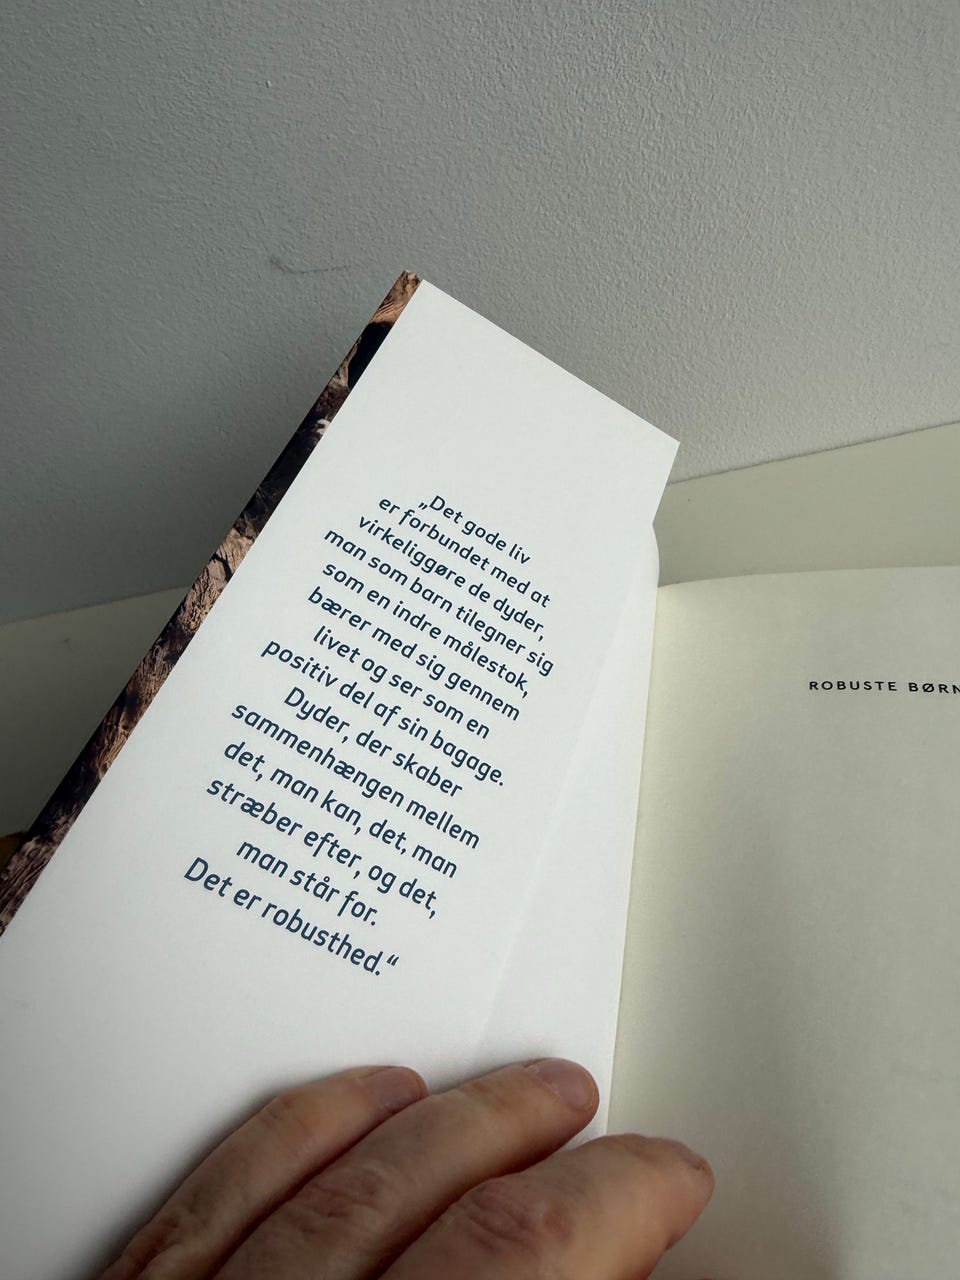 „Det gode liv
er forbundet med at
virkeliggøre de dyder,
man som barn tilegner sig
som en indre målestok,
bærer med sig gennem
livet og ser som en
positiv del af sin bagage.
Dyder, der skaber
sammenhængen mellem
det, man kan, det, man
stræber efter, og det,
man står for.
Det er robusthed.“
ROBUSTE BØRN